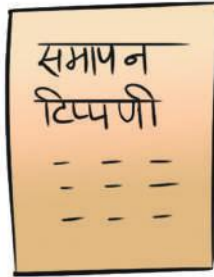 समापन
टिप्पणी